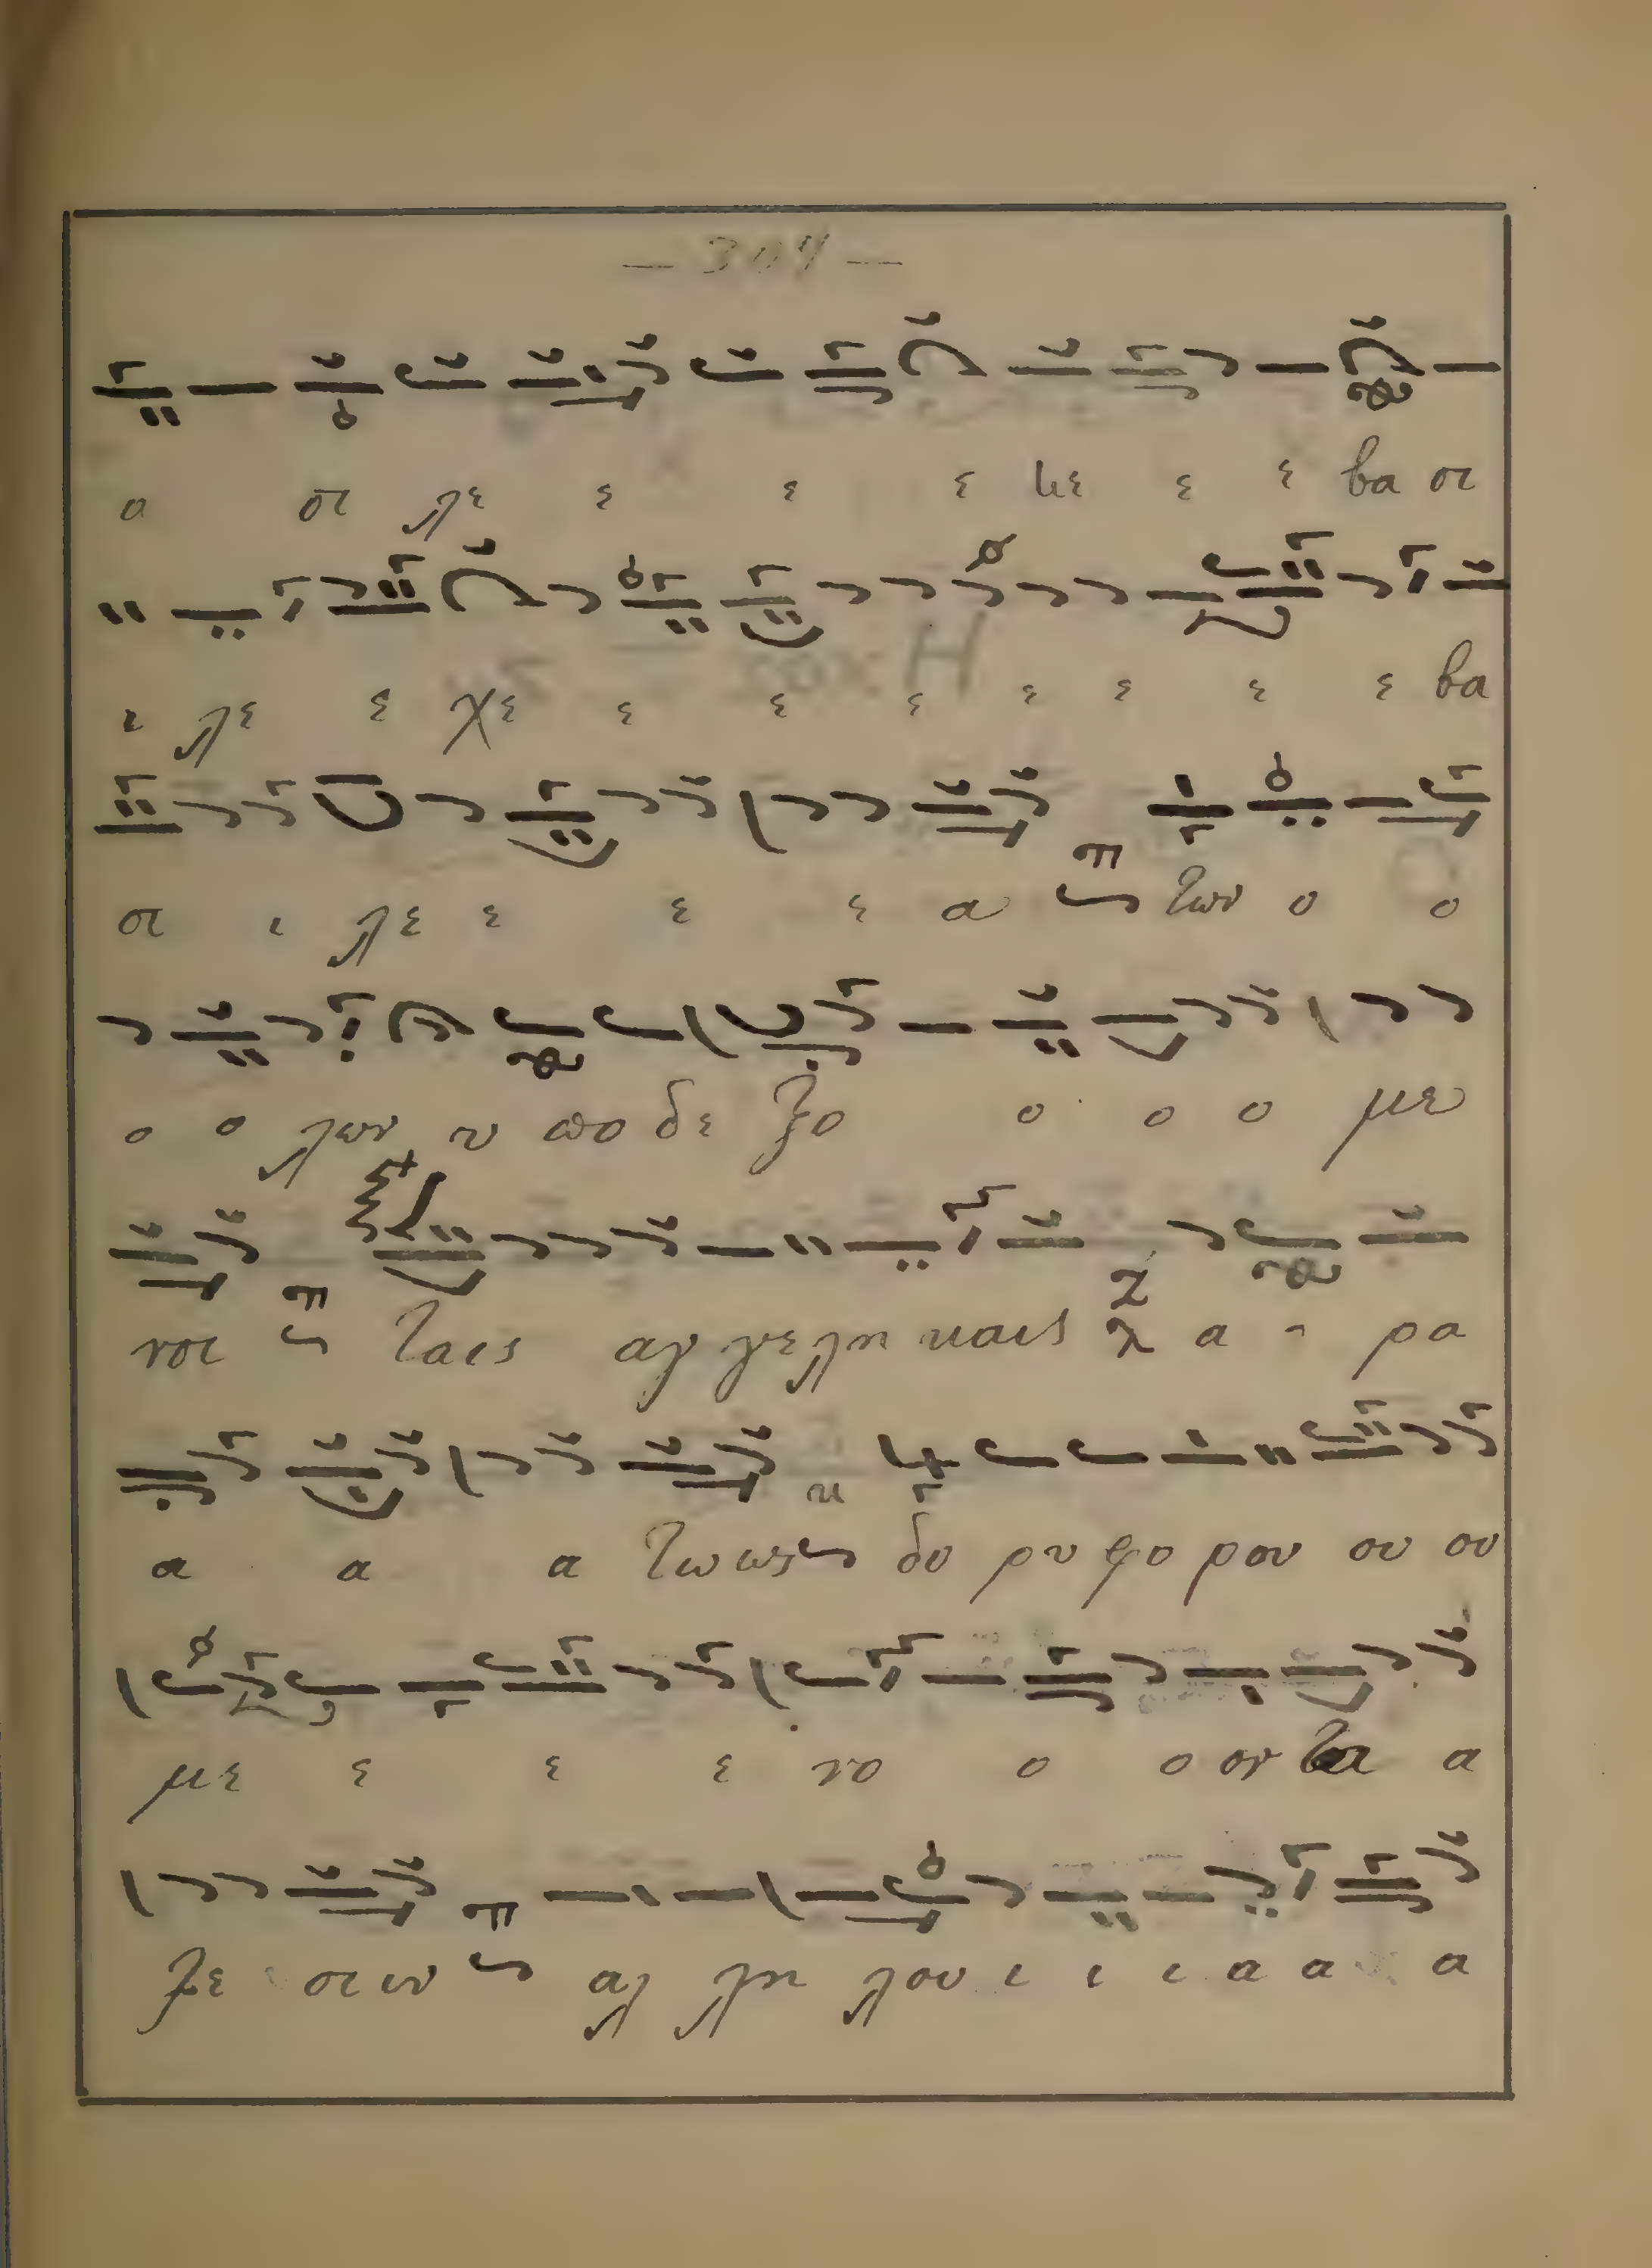 — 304 —
α σι λε ε ε ε με ε ε βα σι
ι λε ε χε ε ε ε ε ε ε ε βα
σι ι λε ε ε ε α των ο ο
ο ο λων υ πο δε ξο ο ο ο με
νοι ταις αγ γελη καις α ρα
α α α τω ως δο ρυ φο ρου ου ου
με ε ε ε νο ο ο ον τα α
ξε σιν αλ λη λου ι ι ι α α α